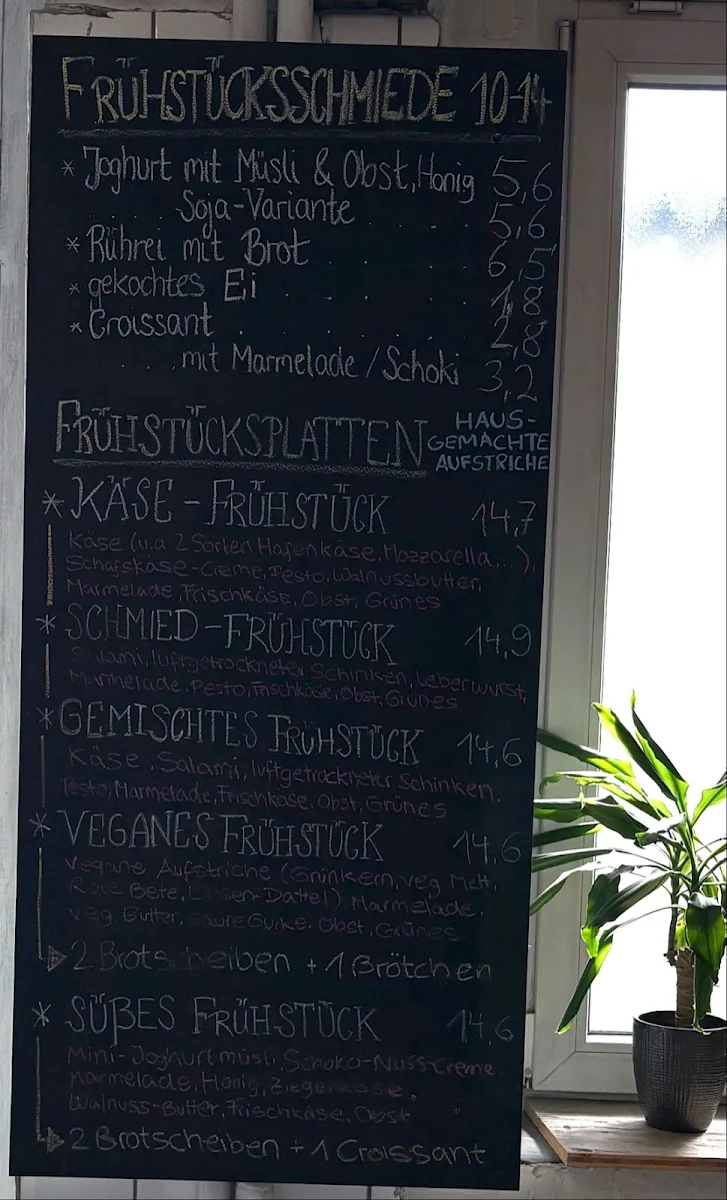 FRÜHSTÜCKSSCHMIEDE 10-14
* Joghurt mit Müsli & Obst, Honig 5,6
Soja-Variante 5,6
* Rührei mit Brot 6,5
* gekochtes Ei 1,8
* Croissant 2,8
mit Marmelade / Schoki 3,2
FRÜHSTÜCKSPLATTEN
HAUS-
GEMACHTE
AUFSTRICHE
* KÄSE-FRÜHSTÜCK 14,7
Käse (u.a 2 Sorten Hafenkäse, Mozzarella,..),
Schafskäse-Creme, Pesto, Walnussbutter,
Marmelade, Frischkäse, Obst, Grünes
* SCHMIED-FRÜHSTÜCK 14,9
Salami, luftgetrockneter Schinken, Leberwurst,
Marmelade, Pesto, Frischkäse, Obst, Grünes
* GEMISCHTES FRÜHSTÜCK 14,6
Käse, Salami, luftgetrockneter Schinken,
Pesto, Marmelade, Frischkäse, Obst, Grünes
* VEGANES FRÜHSTÜCK 14,6
Vegane Aufstriche (Grünkern, veg. Mett,
Rote Bete, Linsen-Dattel) Marmelade,
veg. Butter, saure Gurke, Obst, Grünes
2 Brotscheiben + 1 Brötchen
* SÜßES FRÜHSTÜCK 14,6
Mini-Joghurtmüsli, Schoko-Nuss-Creme,
Marmelade, Honig, Ziegenkäse,
Walnuss-Butter, Frischkäse, Obst
2 Brotscheiben + 1 Croissant